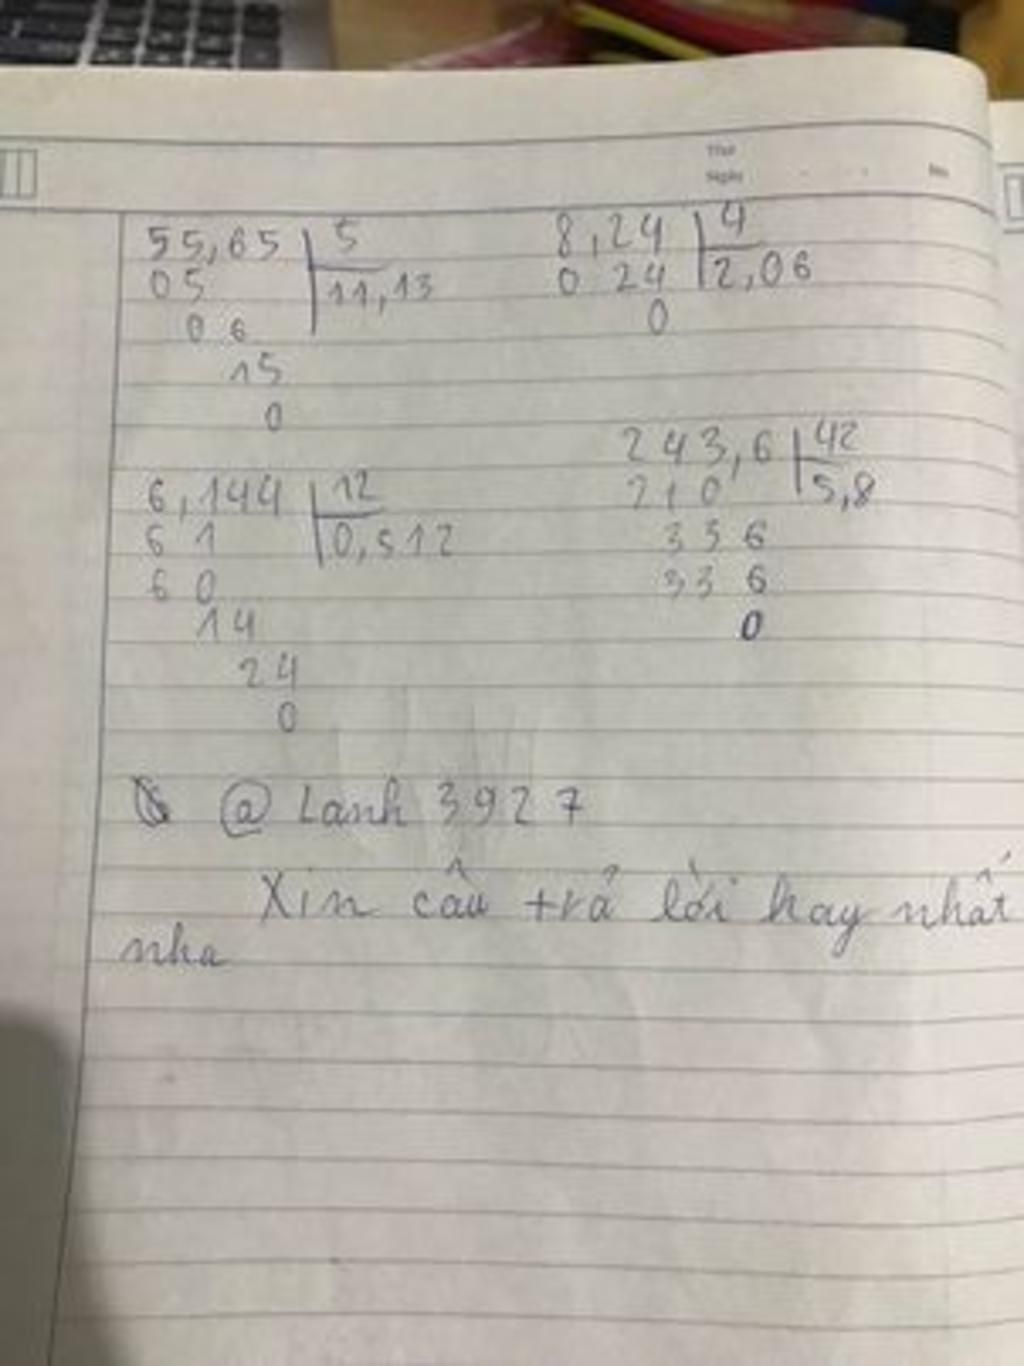 Thứ
Ngày . . No.
55,65 5
05 11,13
06
15
0
8,24 4
0 24 2,06
0
6,144 12
61 0,512
60
14
24
0
243,6 42
210 5,8
336
336
0
@ Lanh 3927
Xin câu trả lời hay nhất
nha